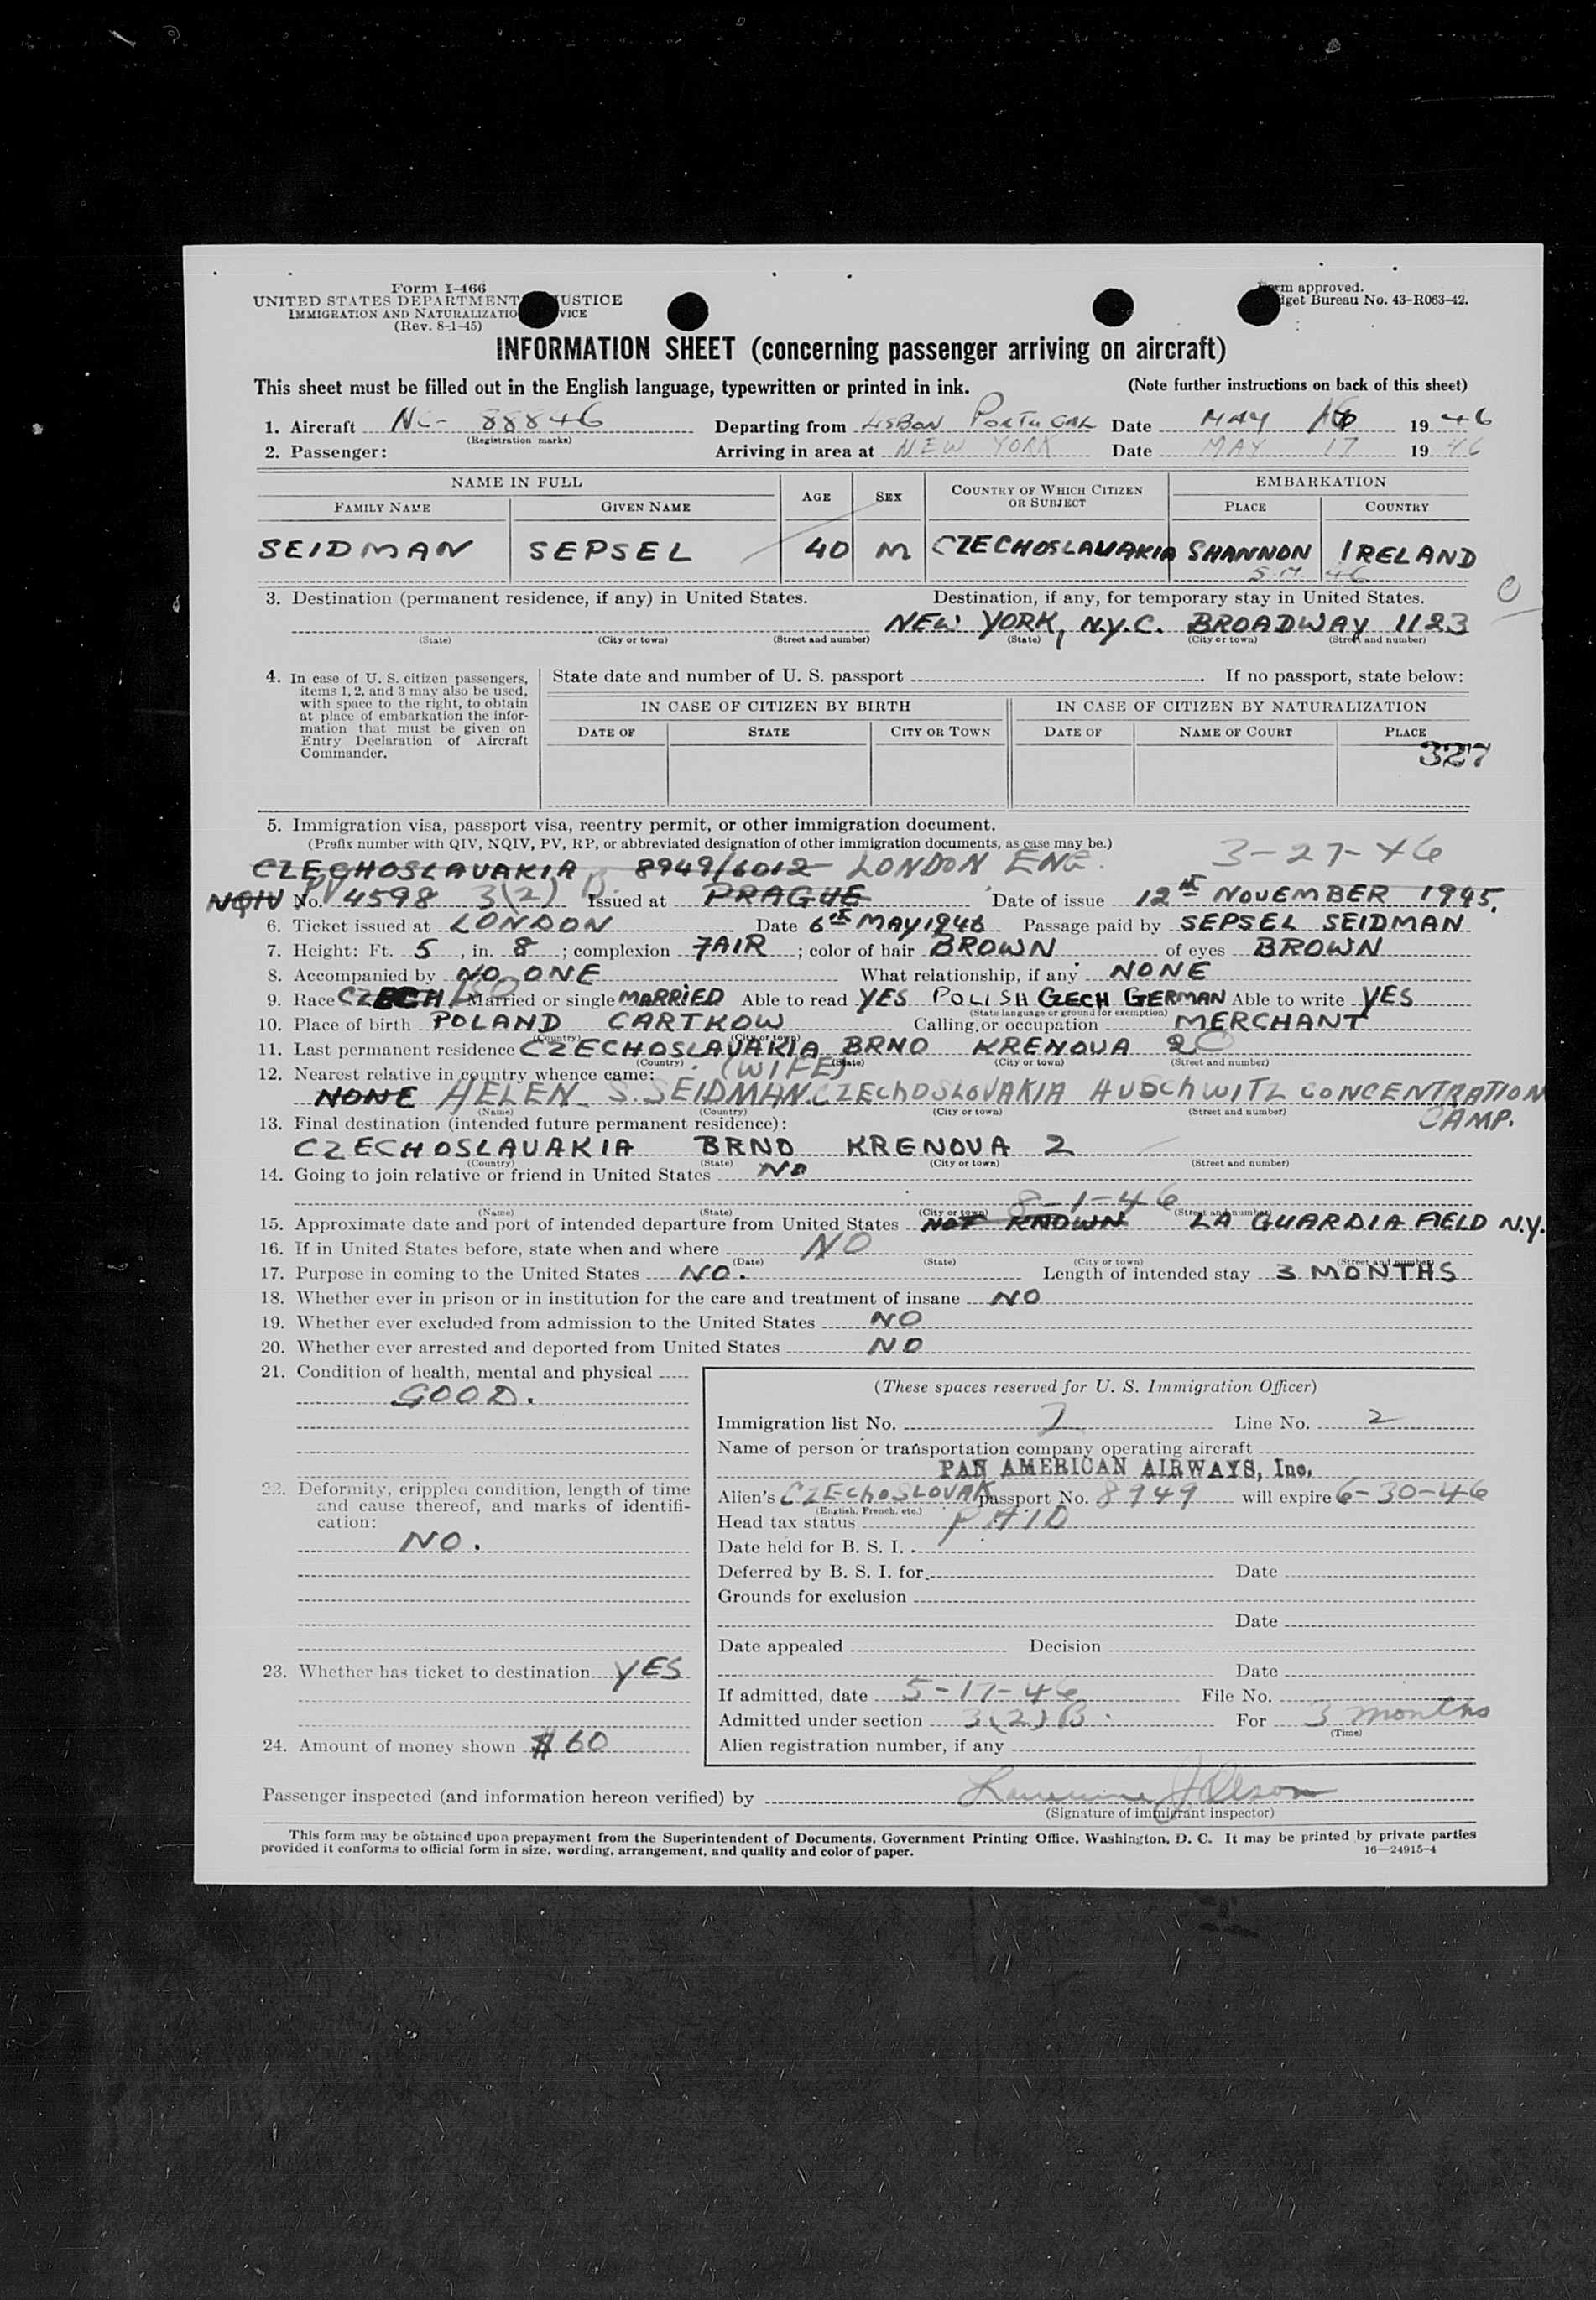 Form I-466
UNITED STATES DEPARTMENT JUSTICE
IMMIGRATION AND NATURALIZATIO VICE
(Rev. 8-1-45)
rm approved.
get Bureau No. 43-R063-42.
INFORMATION SHEET (concerning passenger arriving on aircraft)
This sheet must be filled out in the English language, typewritten or printed in ink. (Note further instructions on back of this sheet)
1. Aircraft NC- 88846 Departing from LISBON PORTUGAL Date MAY 1946
(Registration marks)
2. Passenger: Arriving in area at NEW YORK Date MAY 17 1946
NAME IN FULL AGE SEX COUNTRY OF WHICH CITIZEN OR SUBJECT EMBARKATION
FAMILY NAME GIVEN NAME PLACE COUNTRY
SEIDMAN SEPSEL 40 M CZECHOSLAVAKIA SHANNON IRELAND
3. Destination (permanent residence, if any) in United States. Destination, if any, for temporary stay in United States.
NEW YORK, N.Y.C. BROADWAY 1123
(State) (City or town) (Street and number) (State) (City or town) (Street and number)
4. In case of U. S. citizen passengers, items 1, 2, and 3 may also be used, with space to the right, to obtain at place of embarkation the information that must be given on Entry Declaration of Aircraft Commander.
State date and number of U. S. passport . If no passport, state below:
IN CASE OF CITIZEN BY BIRTH IN CASE OF CITIZEN BY NATURALIZATION
DATE OF STATE CITY OR TOWN DATE OF NAME OF COURT PLACE
327
5. Immigration visa, passport visa, reentry permit, or other immigration document.
(Prefix number with QIV, NQIV, PV, RP, or abbreviated designation of other immigration documents, as case may be.)
CZECHOSLAVAKIA 8949/6012 LONDON ENG. 3-27-46
NQIV PV No. 4598 3(2) B. Issued at PRAGUE Date of issue 12th NOVEMBER 1945.
6. Ticket issued at LONDON Date 6th MAY 1946 Passage paid by SEPSEL SEIDMAN
7. Height: Ft. 5, in. 8; complexion FAIR; color of hair BROWN of eyes BROWN
8. Accompanied by NO ONE What relationship, if any NONE
9. Race CZECH Married or single MARRIED Able to read YES POLISH CZECH GERMAN Able to write YES
(State language or ground for exemption)
10. Place of birth POLAND CARTKOW Calling, or occupation MERCHANT
(Country) (City or town)
11. Last permanent residence CZECHOSLAVAKIA BRNO KRENOVA 20
(Country) (State) (City or town) (Street and number)
12. Nearest relative in country whence came: (WIFE)
NONE HELEN S. SEIDMAN. CZECHOSLOVAKIA AUSCHWITZ CONCENTRATION CAMP.
(Name) (Country) (City or town) (Street and number)
13. Final destination (intended future permanent residence):
CZECHOSLAVAKIA BRNO KRENOVA 2
(Country) (State) (City or town) (Street and number)
14. Going to join relative or friend in United States NO
(Name) (State) (City or town) (Street and number)
8-1-46
15. Approximate date and port of intended departure from United States NOT KNOWN LA GUARDIA FIELD N.Y.
16. If in United States before, state when and where NO
(Date) (State) (City or town) (Street and number)
17. Purpose in coming to the United States NO. Length of intended stay 3 MONTHS
18. Whether ever in prison or in institution for the care and treatment of insane NO
19. Whether ever excluded from admission to the United States NO
20. Whether ever arrested and deported from United States NO
21. Condition of health, mental and physical
GOOD.
22. Deformity, crippled condition, length of time and cause thereof, and marks of identification:
NO.
23. Whether has ticket to destination YES
24. Amount of money shown $ 60
(These spaces reserved for U. S. Immigration Officer)
Immigration list No. Line No. 2
Name of person or transportation company operating aircraft
PAN AMERICAN AIRWAYS, Inc.
Alien's CZECHOSLOVAK passport No. 8949 will expire 6-30-46
(English, French, etc.)
Head tax status PAID
Date held for B. S. I.
Deferred by B. S. I. for Date
Grounds for exclusion
Date
Date appealed Decision
Date
If admitted, date 5-17-46 File No.
Admitted under section 3(2)B. For 3 months
(Time)
Alien registration number, if any
Passenger inspected (and information hereon verified) by
(Signature of immigrant inspector)
This form may be obtained upon prepayment from the Superintendent of Documents, Government Printing Office, Washington, D. C. It may be printed by private parties
provided it conforms to official form in size, wording, arrangement, and quality and color of paper. 16—24915-4